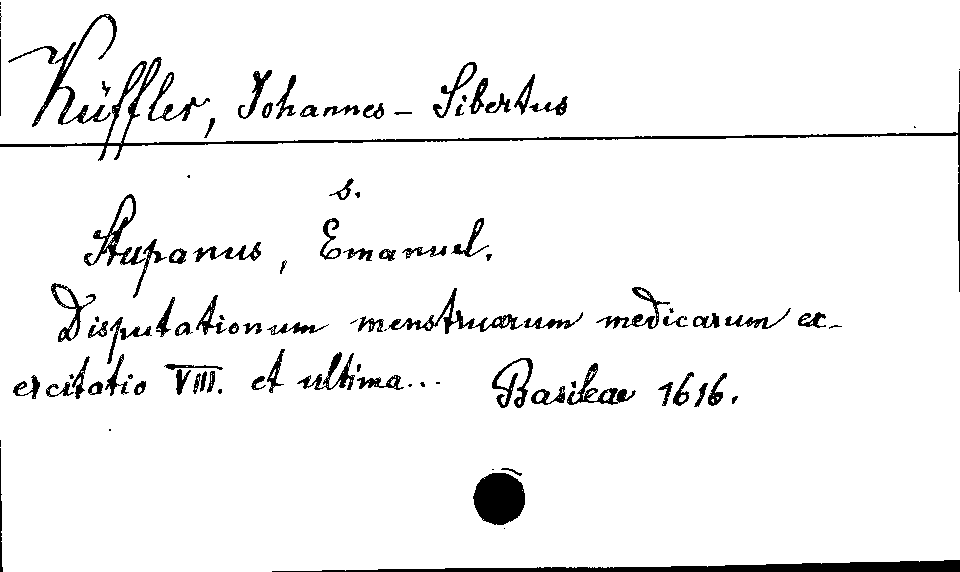 Küffler, Johannes-Sibertus
s.
Stupanus, Emanuel.
Disputationum menstruarum medicarum ex-
ercitatio VIII. et ultima... Basileae 1616.